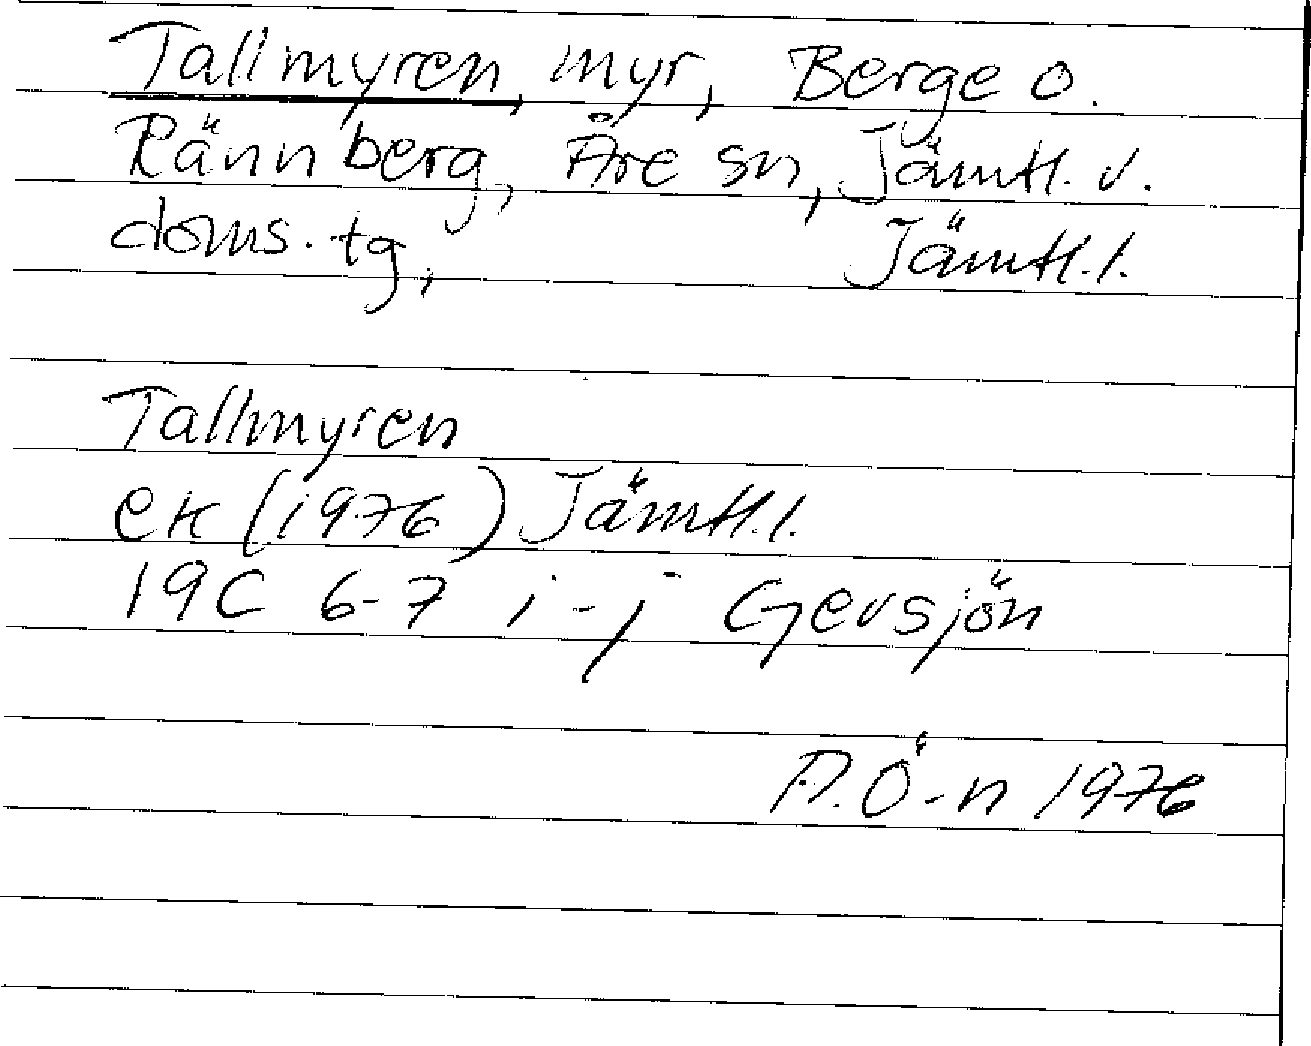 Tallmyren, myr, Berge o.
Rännberg, Åre sn, Jämtl. v.
doms. tg, Jämtl. l.
Tallmyren
ek (1976) Jämtl. l.
19C 6-7 i-j Gevsjön
A. Ö-n 1976